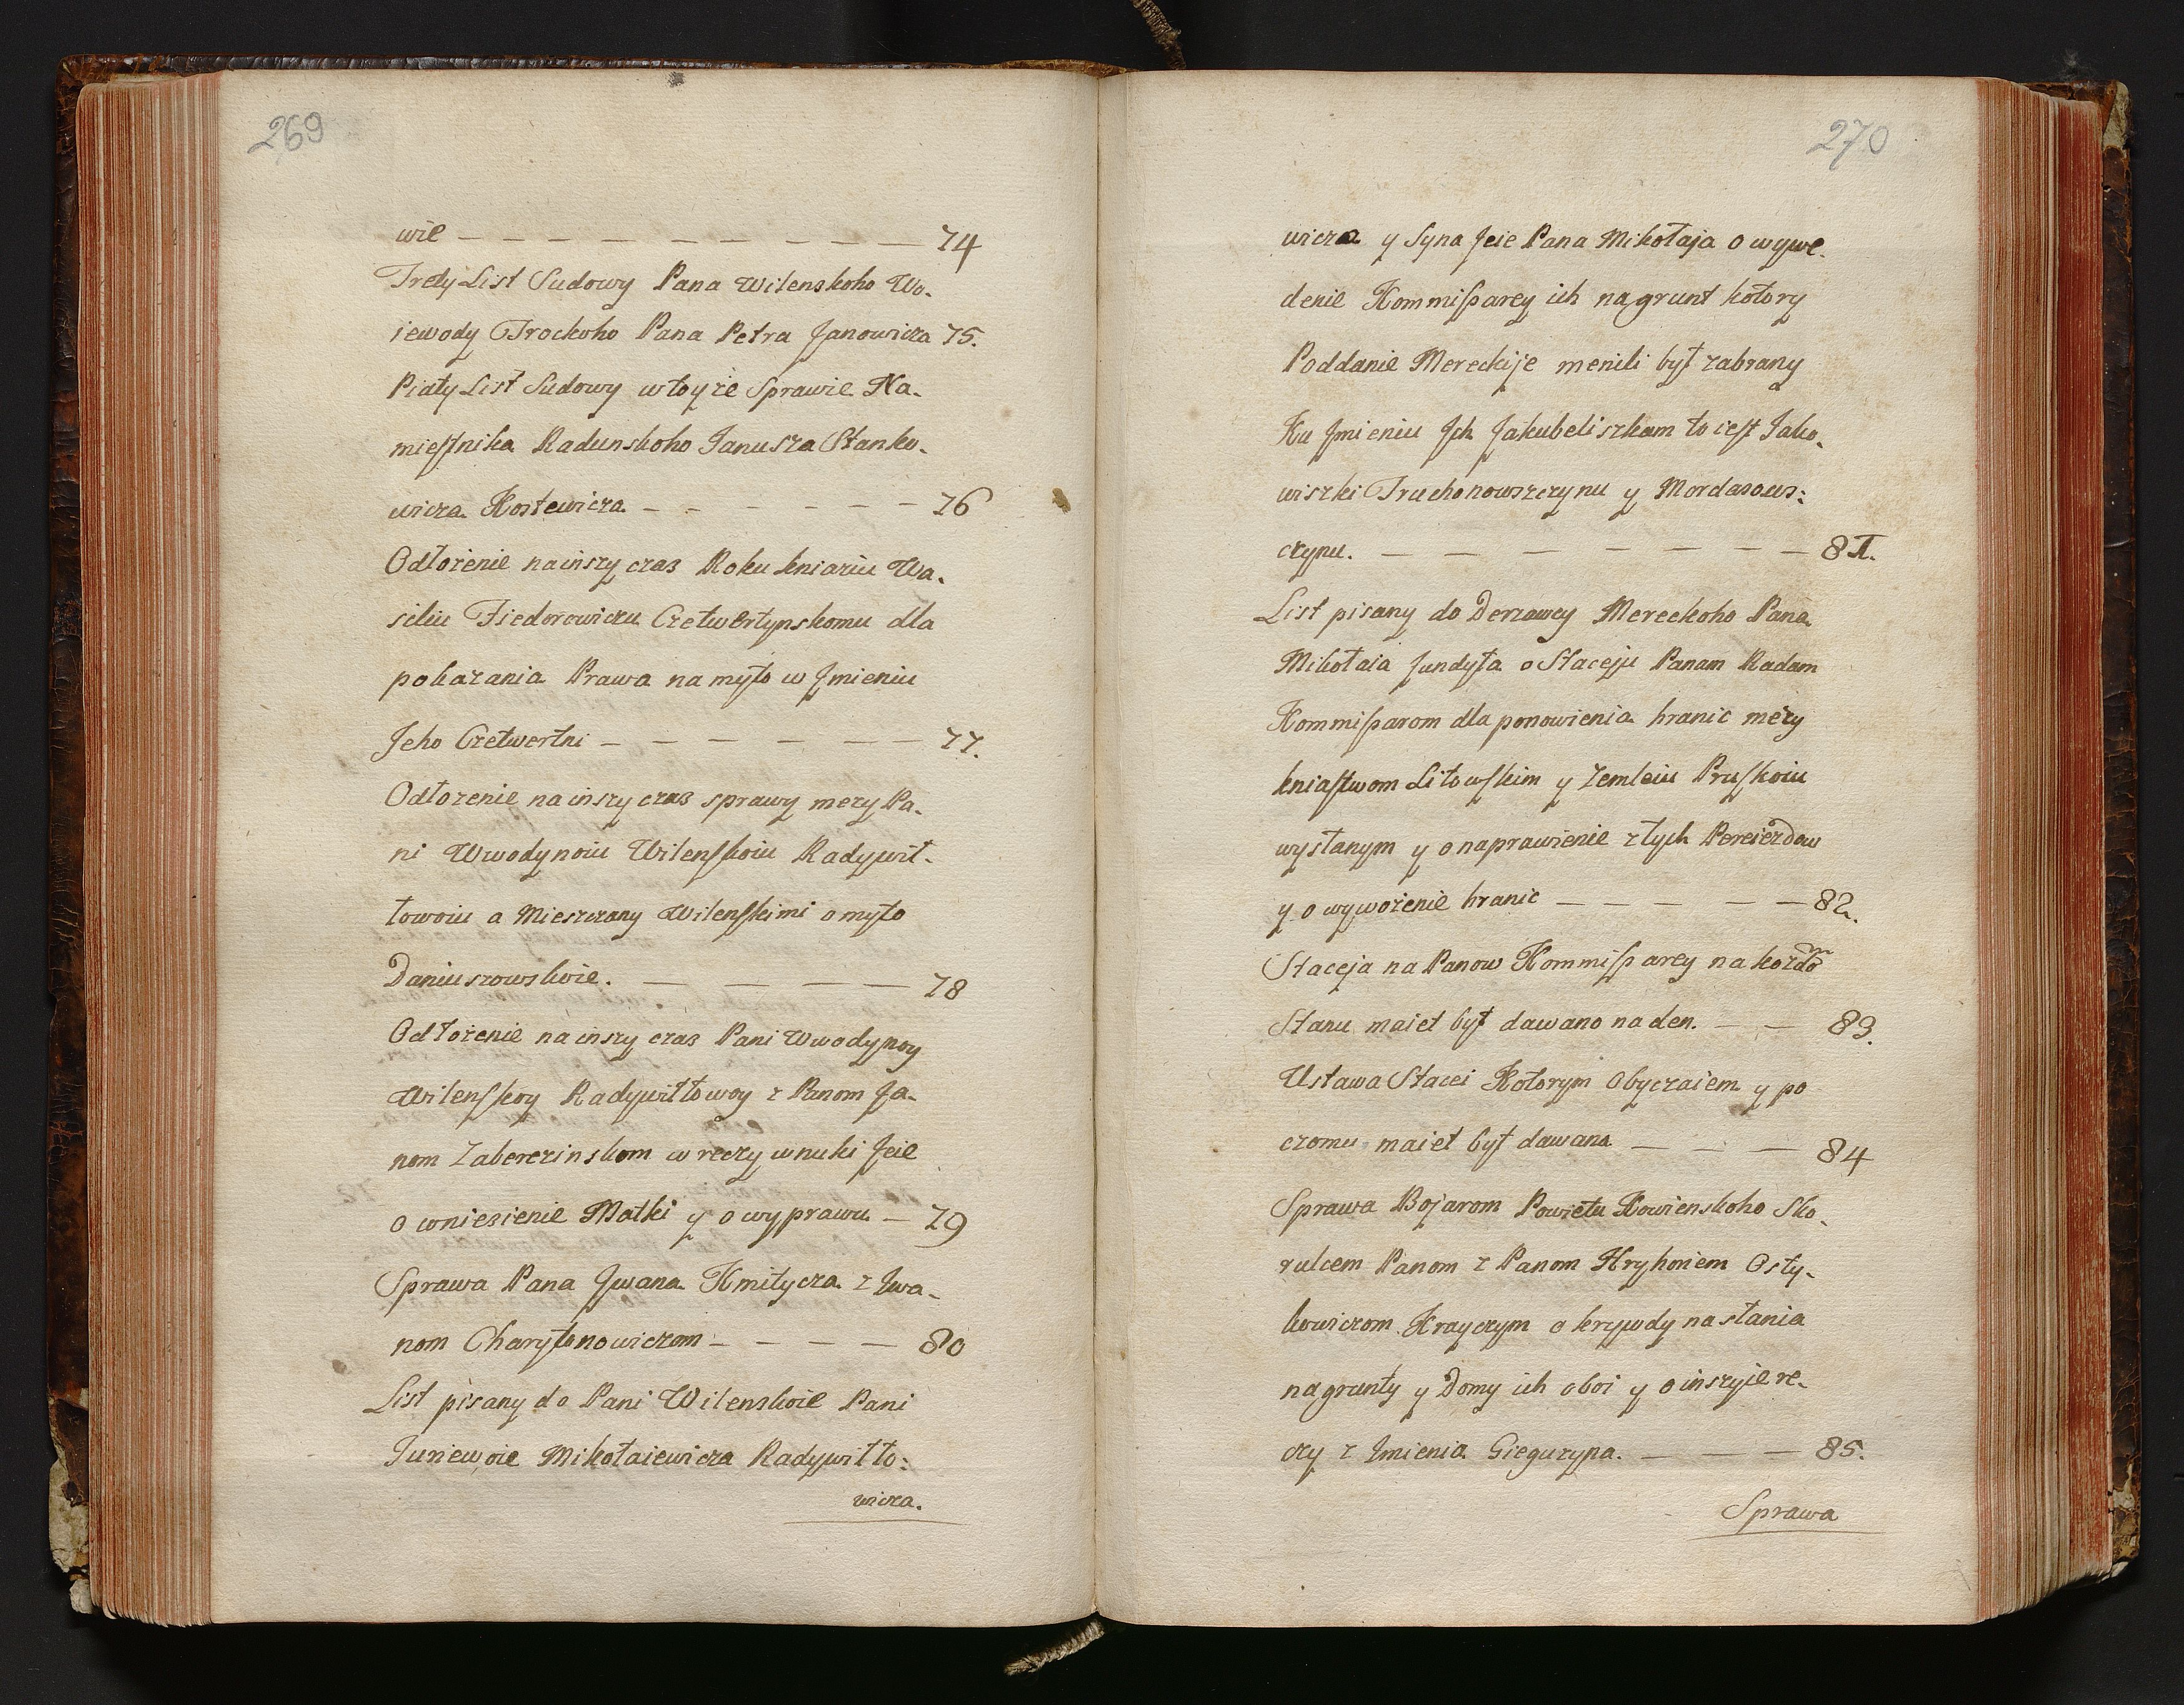 269
wie — — — — — — — — — 74
Trety List Sudowy Pana Wilenskoho Wo-
iewody Trockoho Pana Petra Janowicza 75.
Piaty List Sudowy w toy że Sprawie Na-
miestnika Radunskoho Janusza Stanko-
wicza Kostewicza — — — — — — 76
Odłożenie na inszy czas Roku kniaziu Wa-
siliu Fiedorowiczu Czetwertynskomu dla
pokazania Prawa na myto w Jmieniu
Jeho Czetwertni — — — — — — 77.
Odłozenie na inszy czas sprawy mezy Pa-
ni Wwodynoiu Wilenskoiu Radywił-
łowoiu a Mieszczany Wilenskimi o myto
Daniuszowskoie. — — — — 78
Odłożenie na inszy czas Pani Wwodynoy
Wilenskoy Radywiłłowoy z Panom Ja-
nom Zaberezinskom w reczy wnuki Jeie
o wniesienie Matki y o wyprawu — 79
Sprawa Pana Jwana Kmitycza z Iwa-
nom Charytonowiczom — — — — 80
List pisany do Pani Wilenskoie Pani
Juriewoie Mikołaiewicza Radywiłło:
wicza.
270
wicza y Syna Jeie Pana Mikołaja o wywe-
denie Kommissarey ich na grunt kotory
Poddanie Mereckije menili byt zabrany
Ku Jmieniu Jch Jakubeliszkam to iest Jako-
wiszki Truchonowszczynu y Mordasows:
czynu. — — — — — — — 81.
List pisany do Derzawcy Mereckoho Pana
Mikołaia Jundyła o Staceju Panam Radam
Kommissarom dla ponowienia hranic meży
kniastwom Litowskim y Zemleiu Pruskoiu
wysłanym y o naprawienie złych Pereiezdow
y o wywożenie hranic — — — — — 82.
Staceja na Panow Kommissarey na każdom
Stanu maiet byt dawano na den. — — 83.
Ustawa Stacei Kotorym Obyczaiem y po
czomu maiet byt dawana — — — 84
Sprawa Bojarom Powietu Kowienskoho Sko-
rulcem Panom z Panom Hryhoriem Osty-
kowiczom Krayczym o krzywdy nasłania
na grunty y Domy ich oboi y o inszyie re-
czy z Jmienia Gieguzyna. — — — 85.
Sprawa